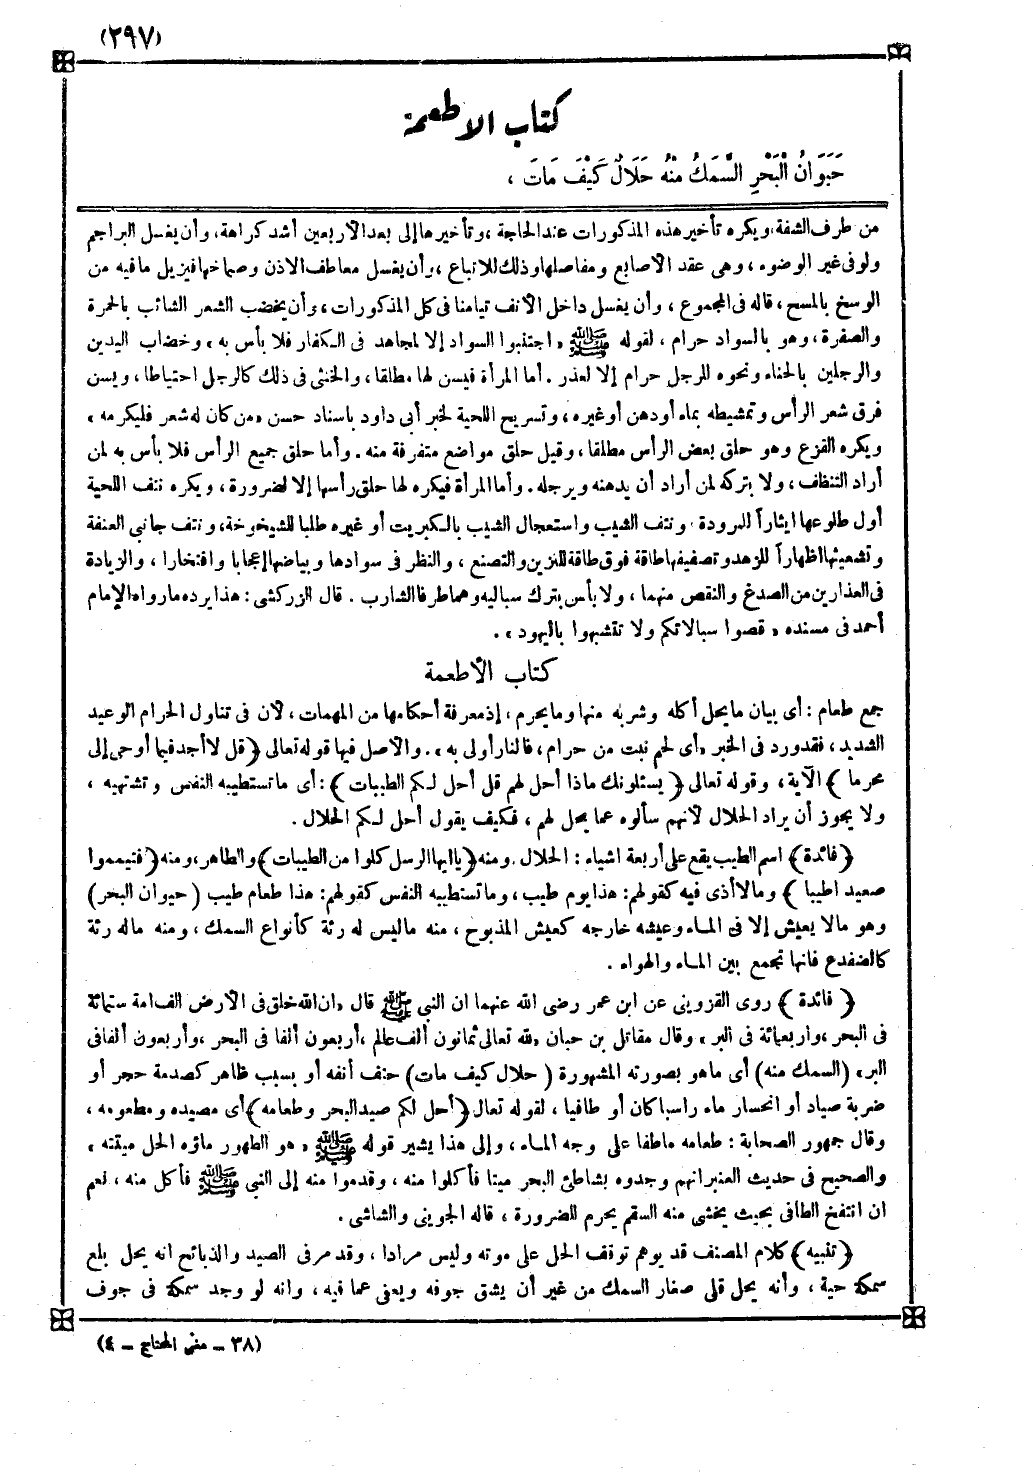 (٢٩٧)
كتاب الاطعمة
حَيَوَانُ الْبَحْرِ السَّمَكُ مِنْهُ حَلَالٌ كَيْفَ مَاتَ ،
من طرف الشفة، ويكره تأخير هذه المذكورات عند الحاجة ، وتأخيرها إلى بعد الأربعين أشد كراهة، وأن يغسل البراجم
ولو فى غير الوضوء ، وهى عقد الأصابع ومفاصلها وذلك للاتباع ، وأن يغسل معاطف الاذن وصماخها فيزيل ما فيه من
الوسخ بالمسح ، قاله فى المجموع ، وأن يغسل داخل الأنف تيامنا فى كل المذكورات ، وأن يخضب الشعر الشائب بالحمرة
والصفرة ، وهو بالسواد حرام ، لقوله ﷺ « اجتنبوا السواد إلا لمجاهد فى الكفار فلا بأس به » وخضاب اليدين
والرجلين بالحناء ونحوه للرجل حرام إلا لعذر . أما المرأة فيسن لها مطلقا ، والخنثى فى ذلك كالرجل احتياطا ، ويسن
فرق شعر الرأس وتمشيطه بماء أو دهن أو غيره ، وتسريح اللحية لخبر أبى داود باسناد حسن « من كان له شعر فليكرمه »
ويكره القزع وهو حلق بعض الرأس مطلقا ، وقيل حلق مواضع متفرقة منه . وأما حلق جميع الرأس فلا بأس به لمن
أراد التنظف ، ولا بتركه لمن أراد أن يدهنه ويرجله . وأما المرأة فيكره لها حلق رأسها إلا لضرورة ، ويكره نتف اللحية
أول طلوعها ايثاراً للمرودة ونتف الشيب واستعجال الشيب بالكبريت أو غيره طلبا للشيخوخة، ونتف جانبى العنفة
وتشعيثها اظهاراً للزهد وتصفيفها طاقة فوق طاقة للتزين والتصنع ، والنظر فى سوادها وبياضها إعجابا وافتخارا ، والزيادة
فى العذارين من الصدغ والنقص منهما ، ولا بأس بترك سباليه وهما طرفا الشارب . قال الزركشى : هذا يرده ما رواه الإمام
أحمد فى مسنده « قصوا سبالاتكم ولا تتشبهوا باليهود » .
كتاب الأطعمة
جمع طعام : أى بيان ما يحل أكله وشربه منها وما يحرم ، إذ معرفة أحكامها من المهمات ، لأن فى تناول الحرام الوعيد
الشديد ، فقد ورد فى الخبر « أى لحم نبت من حرام ، فالنار أولى به » . والأصل فيها قوله تعالى ﴿ قل لا أجد فيما أوحى إلى
محرما ﴾ الآية ، وقوله تعالى ﴿ يسئلونك ماذا أحل لهم قل أحل لكم الطيبات ﴾ : أى ما تستطيبه النفس وتشتهيه ،
ولا يجوز أن يراد الحلال لأنهم سألوه عما يحل لهم ، فكيف يقول أحل لكم الحلال .
﴿ فائدة ﴾ اسم الطيب يقع على أربعة اشياء : الحلال . ومنه ﴿ يا ايها الرسل كلوا من الطيبات ﴾ والطاهر، ومنه ﴿ فتيمموا
صعيد اطيبا ﴾ وما لا أذى فيه كقولهم : هذا يوم طيب ، وما تستطيبه النفس كقولهم : هذا طعام طيب ( حيوان البحر )
وهو ما لا يعيش إلا فى الماء وعيشه خارجه كعيش المذبوح ، منه ما ليس له رئة كأنواع السمك ، ومنه ما له رئة
كالضفدع فانها تجمع بين الماء والهواء .
﴿ فائدة ﴾ روى القزوينى عن ابن عمر رضى الله عنهما ان النبى ﷺ قال « ان الله خلق فى الأرض الف امة ستمائة
فى البحر ، وأربعمائة فى البر » وقال مقاتل بن حبان « لله تعالى ثمانون ألف عالم ، أربعون ألفا فى البحر ، وأربعون ألفا فى
البر » (السمك منه) أى ما هو بصورته المشهورة ( حلال كيف مات) حتف أنفه أو بسبب ظاهر كصدمة حجر أو
ضربة صياد أو انحسار ماء راسبا كان أو طافيا ، لقوله تعال ﴿ أحل لكم صيد البحر وطعامه ﴾ أى مصيده ومطعومه ،
وقال جمهور الصحابة : طعامه ما طفا على وجه الماء ، وإلى هذا يشير قوله ﷺ « هو الطهور ماؤه الحل ميتته »
والصحيح فى حديث العنبر انهم وجدوه بشاطئ البحر ميتا فأكلوا منه ، وقدموا منه إلى النبى ﷺ فأكل منه ، نعم
ان انتفخ الطافى بحيث يخشى منه السقم يحرم للضرورة ، قاله الجوينى والشاشى .
﴿ تنبيه ﴾ كلام المصنف قد يوهم توقف الحل على موته وليس مرادا ، وقد مر فى الصيد والذبائح انه يحل بلع
سمكة حية ، وأنه يحل قلى صغار السمك من غير أن يشق جوفه ويعفى عما فيه ، وانه لو وجد سمكة فى جوف
(٣٨ – مغنى المحتاج – ٤)